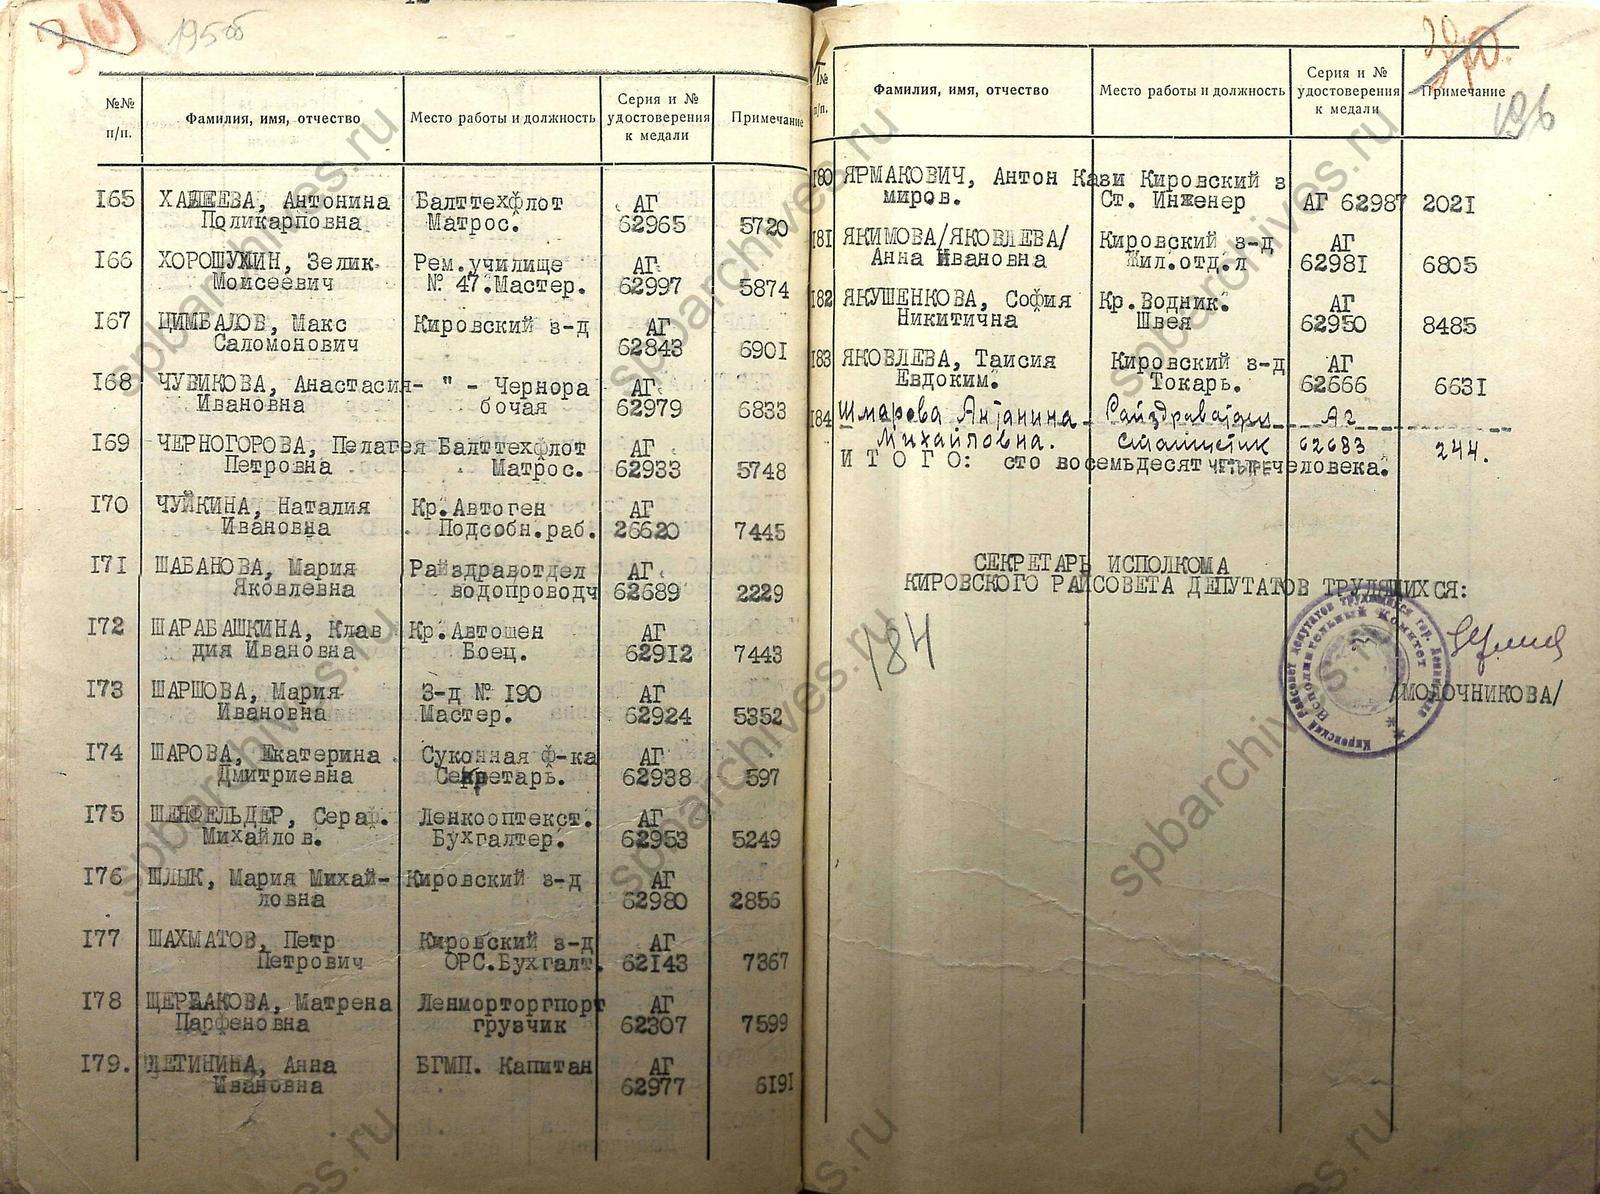 195об
№№ п/п.
Фамилия, имя, отчество
Место работы и должность
Серия и № удостоверения к медали
Примечание
165 ХАЛЕЕВА, Антонина Балттехфлот АГ
Поликарповна Матрос. 62965 5720
166 ХОРОШУХИН, Зелик Рем.училище АГ
Моисеевич № 47.Мастер. 62997 5874
167 ЦИМБАЛОВ, Макс Кировский з-д АГ
Саломонович 62843 6901
168 ЧУВИКОВА, Анастасия- " - Чернора АГ
Ивановна бочая 62979 6833
169 ЧЕРНОГОРОВА, Пелагея Балттехфлот АГ
Петровна Матрос. 62933 5748
170 ЧУЙКИНА, Наталия Кр.Автоген АГ
Ивановна Подсобн.раб. 26620 7445
171 ШАБАНОВА, Мария Райздравотдел АГ
Яковлевна водопроводч 62689 2229
172 ШАРАБАШКИНА, Клав Кр.Автошен АГ
дия Ивановна Боец. 62912 7443
173 ШАРШОВА, Мария З-д № 190 АГ
Ивановна Мастер. 62924 5352
174 ШАРОВА, Екатерина Суконная ф-ка АГ
Дмитриевна Секретарь. 62938 597
175 ШЕНФЕЛЬДЕР, Сераф. Ленкооптекст. АГ
Михайлов. Бухгалтер. 62953 5249
176 ШЛЫК, Мария Михай- Кировский з-д АГ
ловна 62980 2856
177 ШАХМАТОВ, Петр Кировский з-д АГ
Петрович ОРС.Бухгалт. 62143 7367
178 ЩЕРБАКОВА, Матрена Ленморторгпорт АГ
Парфеновна грузчик 62307 7599
179. ЩЕТИНИНА, Анна БГМП. Капитан АГ
Ивановна 62977 6191
196
№ п/п.
Фамилия, имя, отчество
Место работы и должность
Серия и № удостоверения к медали
Примечание
180 ЯРМАКОВИЧ, Антон Кази Кировский з
миров. Ст. Инженер АГ 62987 2021
181 ЯКИМОВА/ЯКОВЛЕВА/ Кировский з-д АГ
Анна Ивановна Жил.отд.л 62981 6805
182 ЯКУШЕНКОВА, София Кр.Водник. АГ
Никитична Швея 62950 8485
183 ЯКОВЛЕВА, Таисия Кировский з-д АГ
Евдоким. Токарь. 62666 6631
184 Шмарова Антонина Райздравотдел АГ
Михайловна. статистик 62683 244.
ИТОГО: сто восемьдесят четыре человека.
184
СЕКРЕТАРЬ ИСПОЛКОМА
КИРОВСКОГО РАЙСОВЕТА ДЕПУТАТОВ ТРУДЯЩИХСЯ:
/МОЛОЧНИКОВА/
Кировский Районный Совет депутатов трудящихся гор. Ленинграда
Исполнительный Комитет
spbarchives.ru
spbarchives.ru
spbarchives.ru
spbarchives.ru
spbarchives.ru
spbarchives.ru